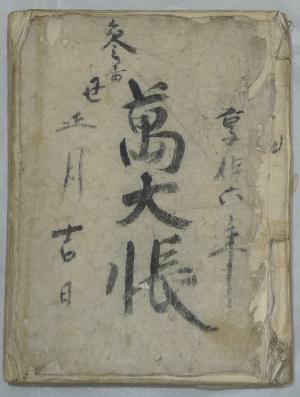 享保六年
萬大帳
參番
丑正月吉日